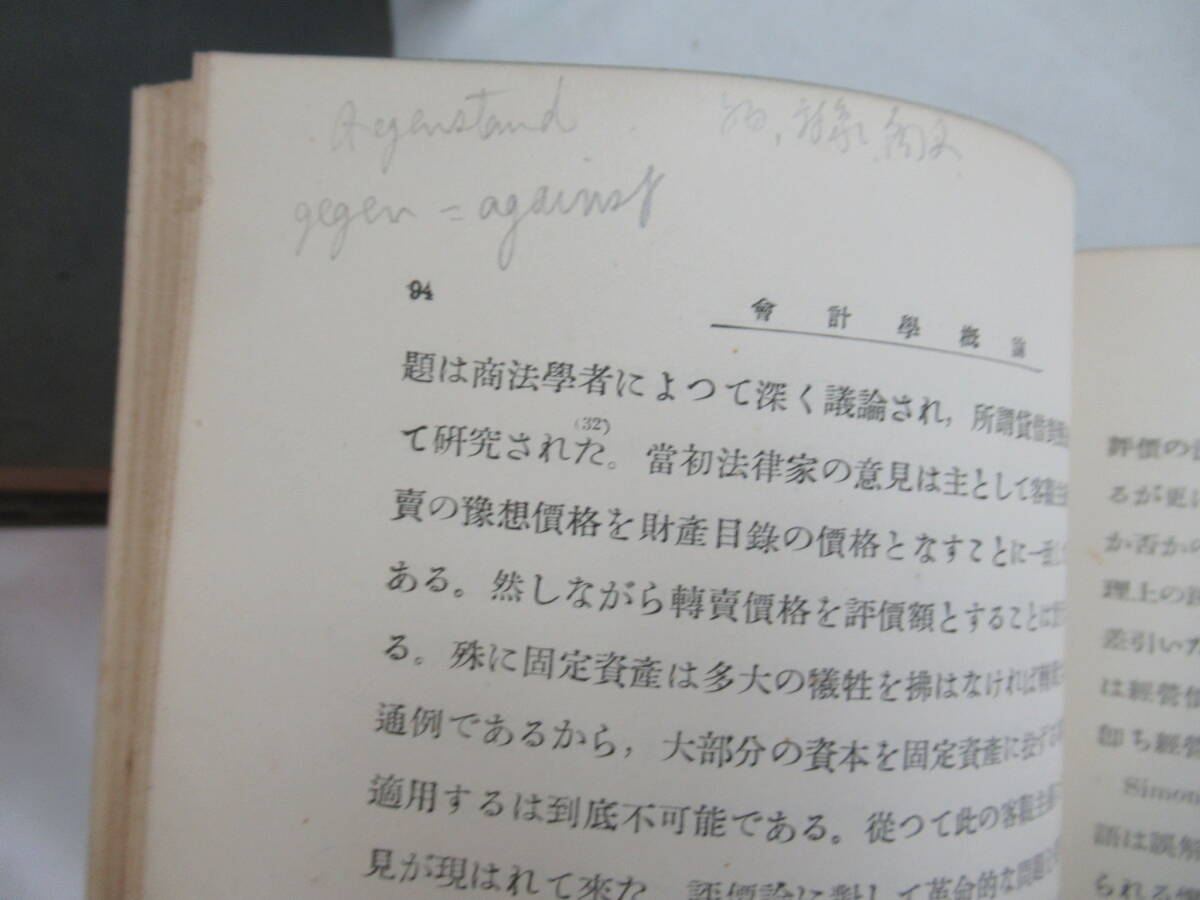 Gegenstand
gegen = against
94
會計學概論
題は商法學者によつて深く議論され，所謂貸借
(32)
て硏究された。當初法律家の意見は主として客觀主
賣の豫想價格を財產目錄の價格となすことに一
ある。然しながら轉賣價格を評價額とすることは
る。殊に固定資產は多大の犧牲を拂はなければ
通例であるから，大部分の資本を固定資產に投
適用するは到底不可能である。從つて此の客觀主
見が現はれて來た。評價論に對して革命的な問題
評價の
るが更に
か否か
理上の
差引い
は經營
卽ち經營
Simon
語は誤解
られる